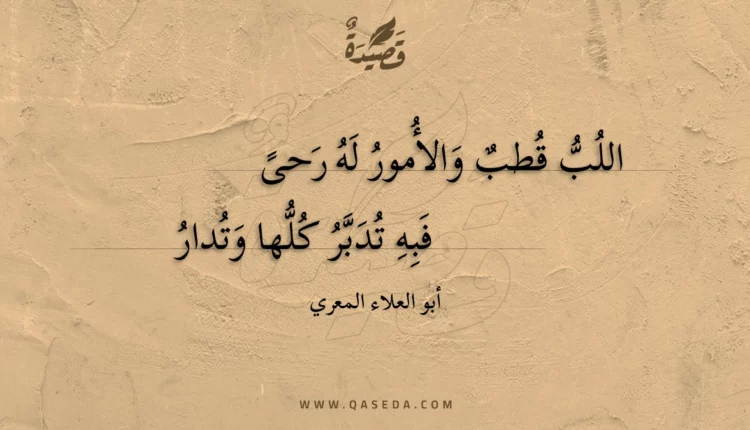 قَصِيْدَةٌ
اللُبُّ قُطبٌ وَالأُمورُ لَهُ رَحىً
فَبِهِ تُدَبَّرُ كُلُّها وَتُدارُ
أبو العلاء المعري
WWW.QASEDA.COM